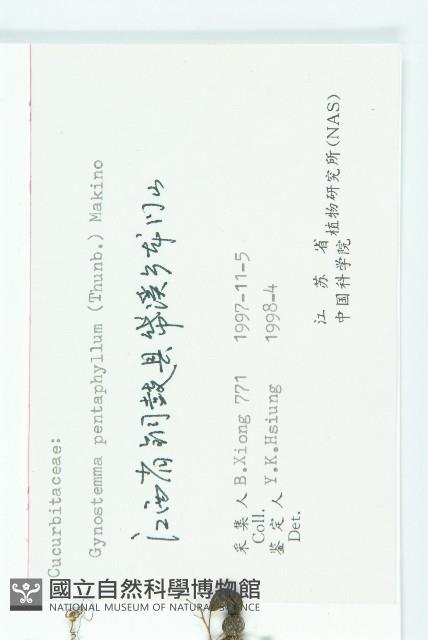 Cucurbitaceae:
Gynostemma pentaphyllum (Thunb.) Makino
江西省铜鼓县
采集人 B.Xiong 771 1997-11-5
Coll.
鉴定人 Y.K.Hsiung 1998-4
Det.
江苏省
中国科学院 植物研究所(NAS)
國立自然科學博物館
NATIONAL MUSEUM OF NATURAL SCIENCE